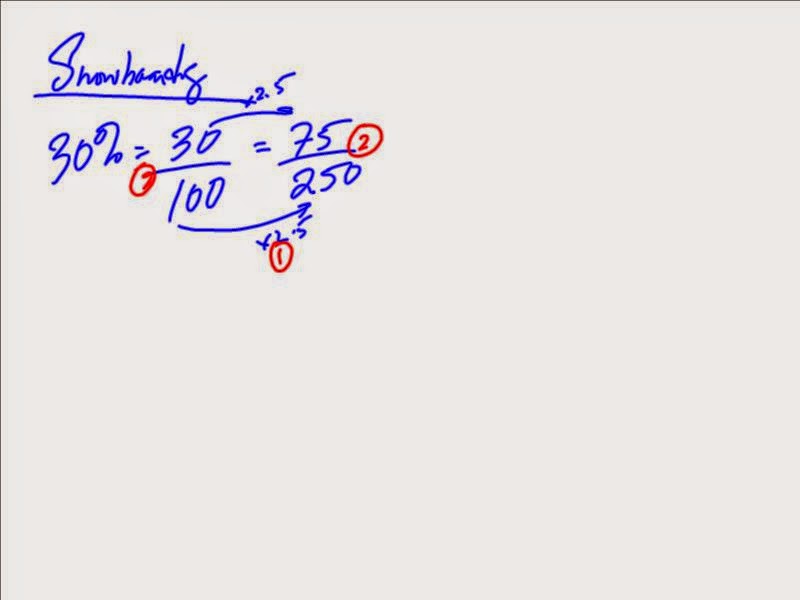 Snowboards
×2.5
30% = 30/100 = 75/250 ②
×2.5
①